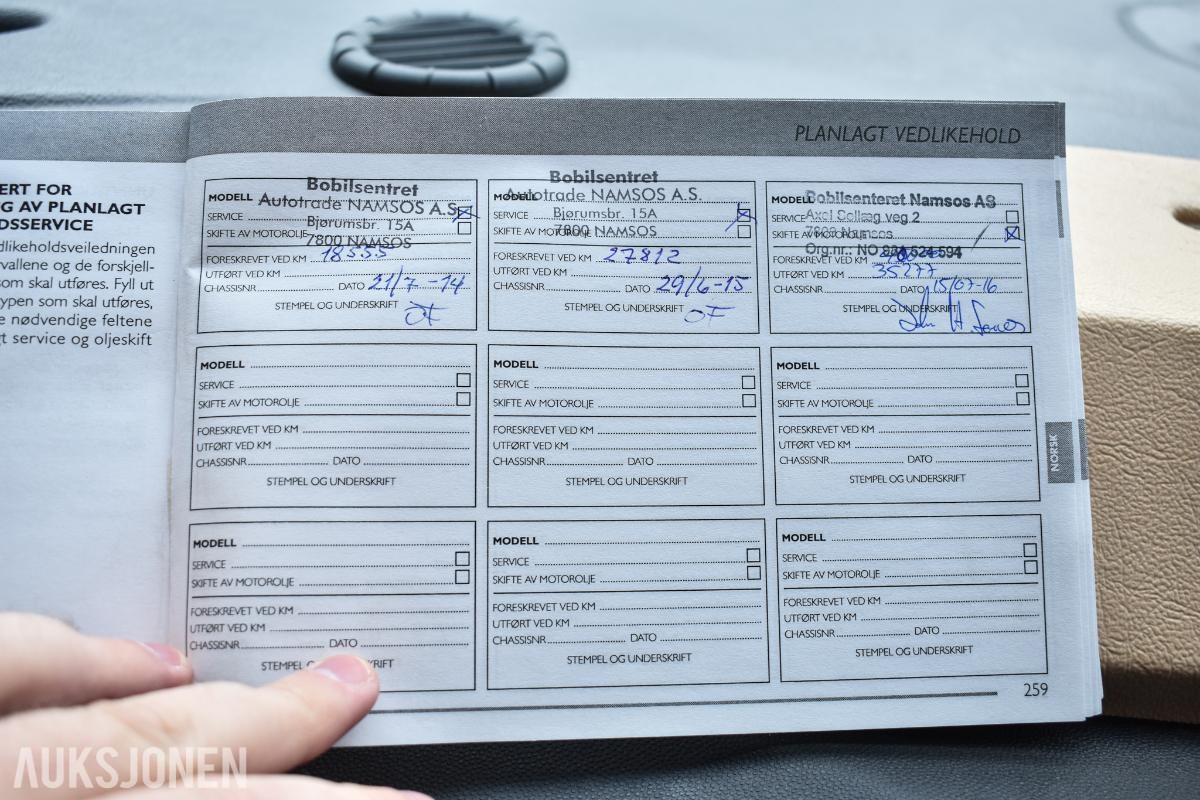 PLANLAGT VEDLIKEHOLD
ERT FOR
G AV PLANLAGT
DSSERVICE
dlikeholdsveiledningen
vallene og de forskjell-
som skal utføres. Fyll ut
ypen som skal utføres,
e nødvendige feltene
gt service og oljeskift
Bobilsentret
MODELL Autotrade NAMSOS A.S.
SERVICE Bjørumsbr. 15A
SKIFTE AV MOTOROLJE 7800 NAMSOS
FORESKREVET VED KM 18555
UTFØRT VED KM
CHASSISNR DATO 21/7-14
STEMPEL OG UNDERSKRIFT
OF
Bobilsentret
MODELL Autotrade NAMSOS A.S.
SERVICE Bjørumsbr. 15A
SKIFTE AV MOTOROLJE 7800 NAMSOS
FORESKREVET VED KM 27812
UTFØRT VED KM
CHASSISNR DATO 29/6-15
STEMPEL OG UNDERSKRIFT
OF
MODELL Bobilsenteret Namsos AS
SERVICE Axel Sellæg veg 2
SKIFTE AV MOTOROLJE 7800 Namsos
Org.nr.: NO
FORESKREVET VED KM
UTFØRT VED KM 35277
CHASSISNR DATO 15/07-16
STEMPEL OG UNDERSKRIFT
MODELL
SERVICE
SKIFTE AV MOTOROLJE
FORESKREVET VED KM
UTFØRT VED KM
CHASSISNR DATO
STEMPEL OG UNDERSKRIFT
MODELL
SERVICE
SKIFTE AV MOTOROLJE
FORESKREVET VED KM
UTFØRT VED KM
CHASSISNR DATO
STEMPEL OG UNDERSKRIFT
MODELL
SERVICE
SKIFTE AV MOTOROLJE
FORESKREVET VED KM
UTFØRT VED KM
CHASSISNR DATO
STEMPEL OG UNDERSKRIFT
NORSK
MODELL
SERVICE
SKIFTE AV MOTOROLJE
FORESKREVET VED KM
UTFØRT VED KM
CHASSISNR DATO
STEMPEL OG UNDERSKRIFT
MODELL
SERVICE
SKIFTE AV MOTOROLJE
FORESKREVET VED KM
UTFØRT VED KM
CHASSISNR DATO
STEMPEL OG UNDERSKRIFT
MODELL
SERVICE
SKIFTE AV MOTOROLJE
FORESKREVET VED KM
UTFØRT VED KM
CHASSISNR DATO
STEMPEL OG UNDERSKRIFT
259
AUKSJONEN